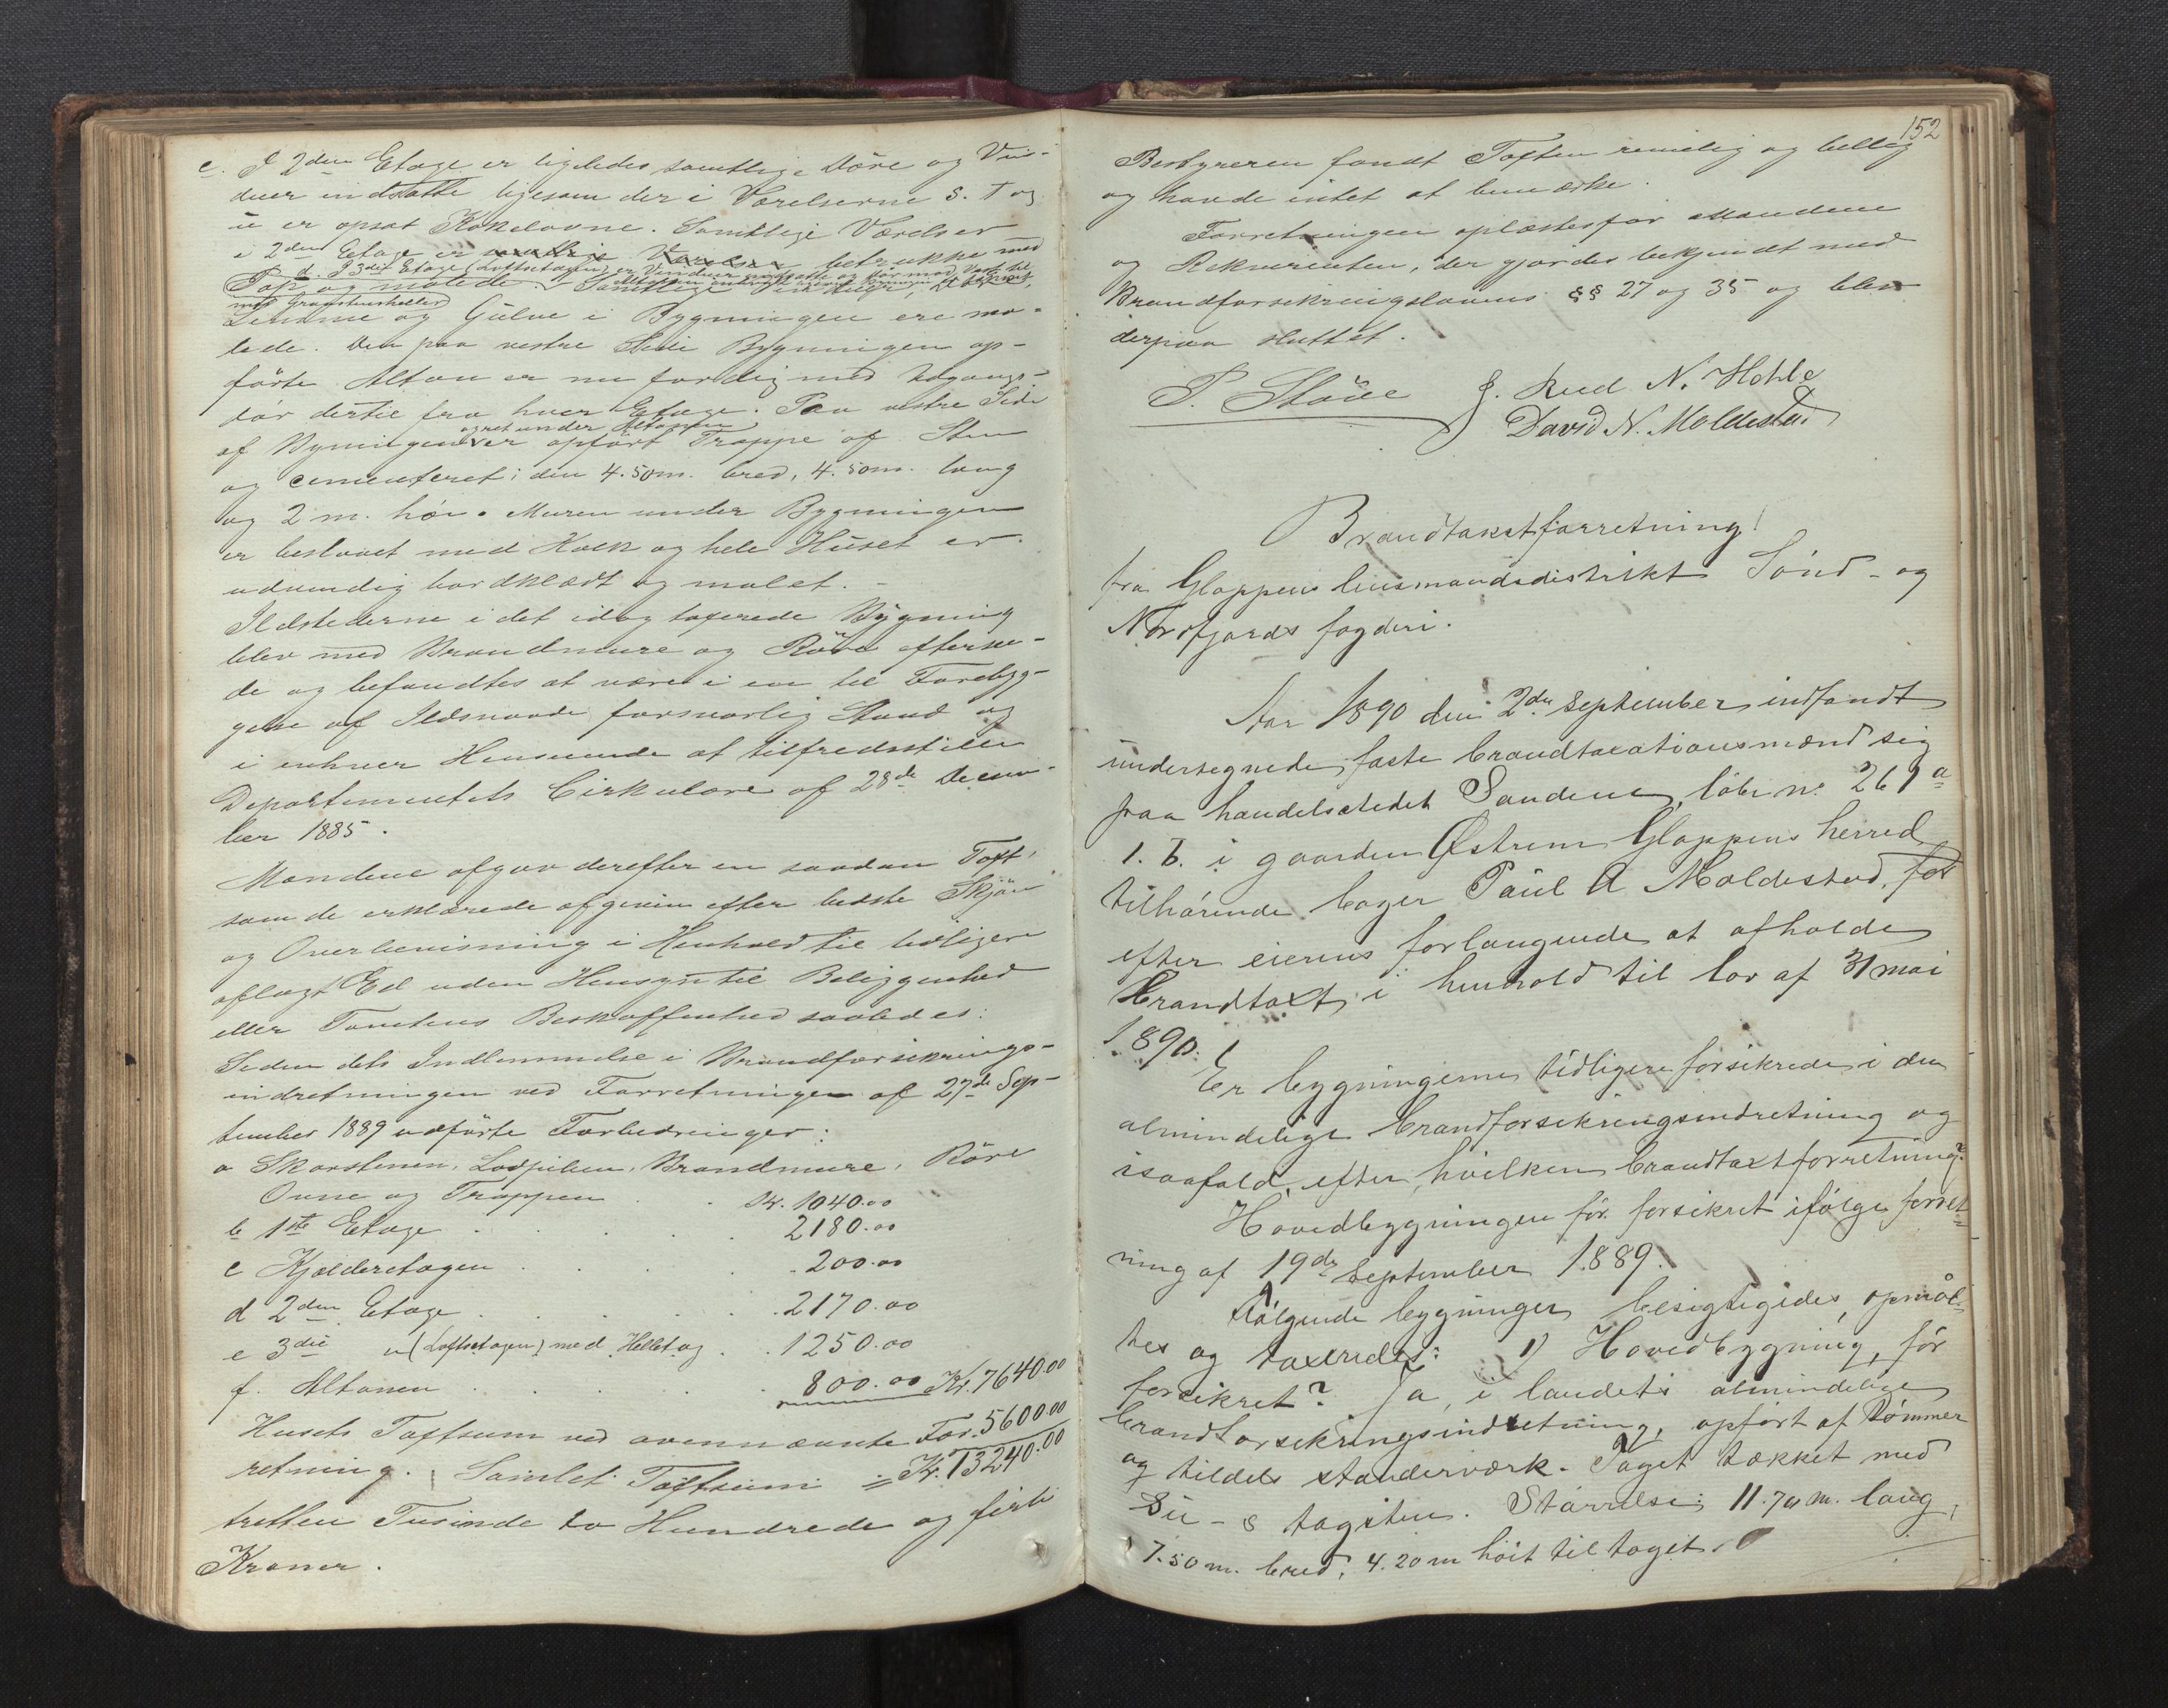 c. I 2den Etage er ligeledes samtlige Döre og Vin-
duer indsatte ligesom der i Værelserne S. T og
u er opsat Kakelovne. Samtlige Værelser
i 2den Etage er samtlige Værelser betrukke med
d. I 3die Etage (Loftsetagen) er Vinduer indsatte og dör mod Vest til
Pap og malede. Samtlige
med Graastensheller
Listerne og Gulve i Bygningen ere ma-
lede. Den paa vestre Side Bygningen op-
förte Altan er nu færdig med Udgangs-
dör dertil fra hver Etage. Paa vestre Side
og ret under Altanen
af Bygningen er opfört Trappe af Sten
og cementeret; den 4.50m. bred, 4.50m. lang
og 2 m. höi. Muren under Bygningen
er beslaaet med Kalk og hele Huset er
udvendig bordklædt og malet. -
Ildstederne i det idag taxerede Bygning
blev med Brandmure og Röre efterse-
de og befandtes at være i en til Forebyg-
gelse af Ildsvaade forsvarlig Stand og
i enhver Henseende at tilfredsstille
Departementets Cirkulære af 28de Decem-
ber 1885.
Mændene afgav derefter en saadan Taxt,
som de erklærede afgiven efter bedste Skjön
og Overbevisning i Henhold til tidligere
aflagt Ed uden Hensyn til Beliggenhed
eller Tomtens Beskaffenhed saaledes:
Siden dets Indlemmelse i Brandforsikrings-
indretningen ved Forretningen af 27de Sep-
tember 1889 udförte Forbedringer:
a Skorstenen, Lodpiben, Brandmure, Röre
Ovne og Trappen . . Kr. 1040.00
b 1ste Etage . . . . 2180.00
c Kjælderetagen . . . . 200.00
d 2den Etage . . . . 2170.00
e 3die " (Loftsetagen) med Helletag . . 1250.00
f. Altanen . . . . 800.00 Kr. 7640.00
Husets Taxtsum ved ovennævnte For- 5600.00
retning. Samlet Taxtsum = Kr. 13240.00
tretten Tusinde to Hundrede og firti
Kroner.
152
Bestyreren fandt Taxten rimelig og billig
og havde intet at bemærke.
Forretningen oplæstes for Mændene
og Rekvirenten, der gjordes bekjendt med
Brandforsikringslovens §§ 27 og 35 og blev
derpaa sluttet.
P. Stöve J. Rud N. Hohle
David N. Moldestad
Brandtakstforretning!
fra Gloppens lensmandsdistrikt Sönd- og
Nordfjords fogderi.
Aar 1890 den 2den september indfandt
undertegnede faste brandtaxationsmænd sig
paa handelsstedet Sandene, löbe no. 261a
1. b. i gaarden Østrem Gloppens herred
tilhörende bager Paul A Moldestad, for
efter eierens forlangende at afholde
Brandtaxt i henhold til lov af 31 mai
1890.
Er bygningerne tidligere forsikrede i den
almindelige brandforsikringsindretning og
isaafald efter hvilken brandtaxtforretning?
Hovedbygningen för forsikret ifölge forret-
ning af 19de September 1889.
Fölgende bygninger besigtigedes, opmål-
tes og taxeredes: 1) Hovedbygning, för
forsikret? Ja, i landets almindelige
brandforsikringsindretning, opfört af tömmer
og tildels standerværk. Taget tækket med
Su-s tagsten. Störrelse: 11.70m. lang,
7.50 m. bred, 4.20 m höit til taget.